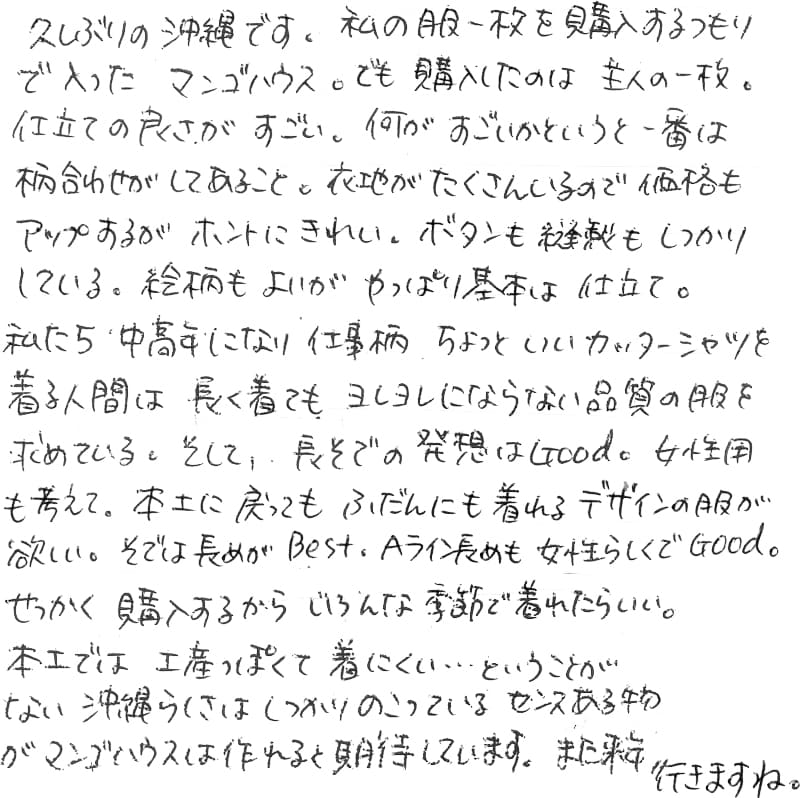 久しぶりの沖縄です。私の服一枚を購入するつもり
で入った マンゴハウス。でも購入したのは 主人の一枚。
仕立ての良さが すごい。何が すごいかというと一番は
柄合わせがしてあること。衣地がたくさんいるので価格も
アップするが ホントに きれい。ボタンも縫製も しっかり
している。絵柄も よいが やっぱり基本は 仕立て。
私たち 中高年になり 仕事柄 ちょっと いいカッターシャツを
着る人間は 長く着ても ヨレヨレにならない品質の服を
求めている。そして、長そでの 発想はGood。女性用
も考えて。本土に 戻っても ふだんにも着れる デザインの服が
欲しい。そでは長めが Best。Aライン長めも 女性らしくて GOOD。
せっかく 購入するから いろんな 季節で着れたらいい。
本土では 土産っぽくて 着にくい…ということが
ない 沖縄らしさは しっかり のこっている センスある物
が マンゴハウスは作れると期待しています。また来年
行きますね。